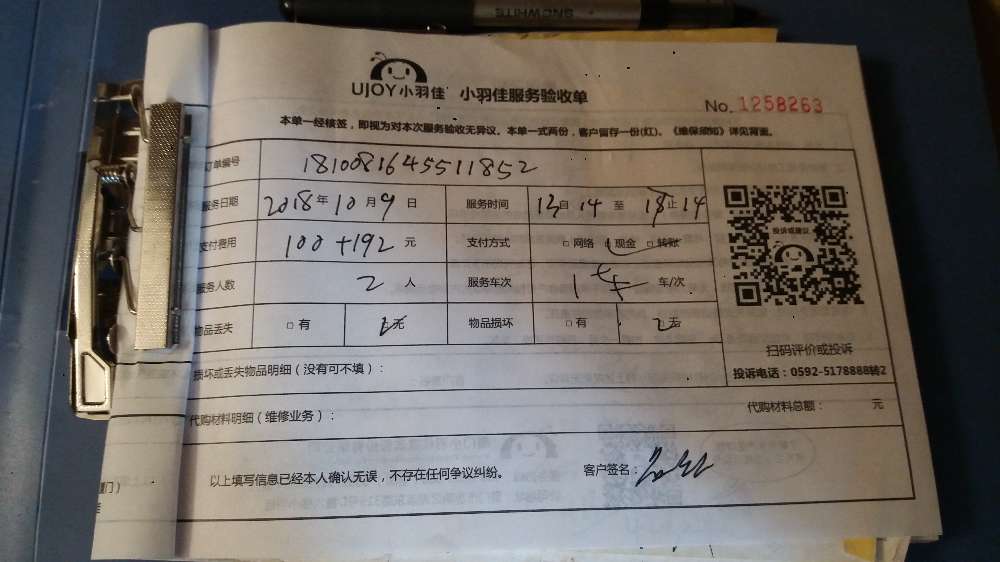 SNOWHITE
UJOY小羽佳 小羽佳服务验收单
No. 1258263
本单一经核签，即视为对本次服务验收无异议。本单一式两份，客户留存一份(红)。《维保须知》详见背面。
订单编号 1810081645511852
服务日期 2018年10月9日 服务时间 13自14至 18止14
支付费用 100+192元 支付方式 □网络 □现金 □转账
投诉或建议
服务人数 2人 服务车次 1车 车/次
物品丢失 □有 无 物品损坏 □有 无
扫码评价或投诉
损坏或丢失物品明细（没有可不填）：
投诉电话：0592-5178888转2
代购材料明细（维修业务）： 代购材料总额： 元
以上填写信息已经本人确认无误，不存在任何争议纠纷。 客户签名：
厦门）